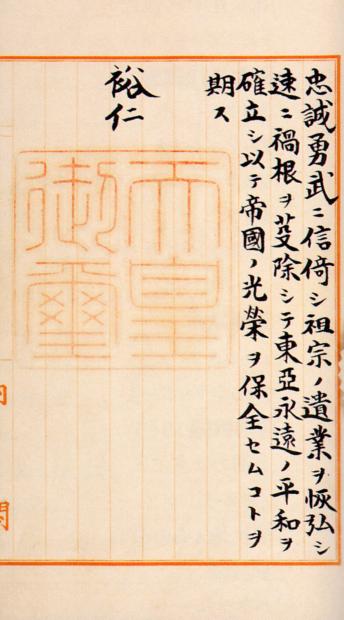 忠誠勇武ニ信倚シ祖宗ノ遺業ヲ恢弘シ
速ニ禍根ヲ芟除シテ東亞永遠ノ平和ヲ
確立シ以テ帝國ノ光榮ヲ保全セムコトヲ
期ス
裕仁
天皇
御璽
閣